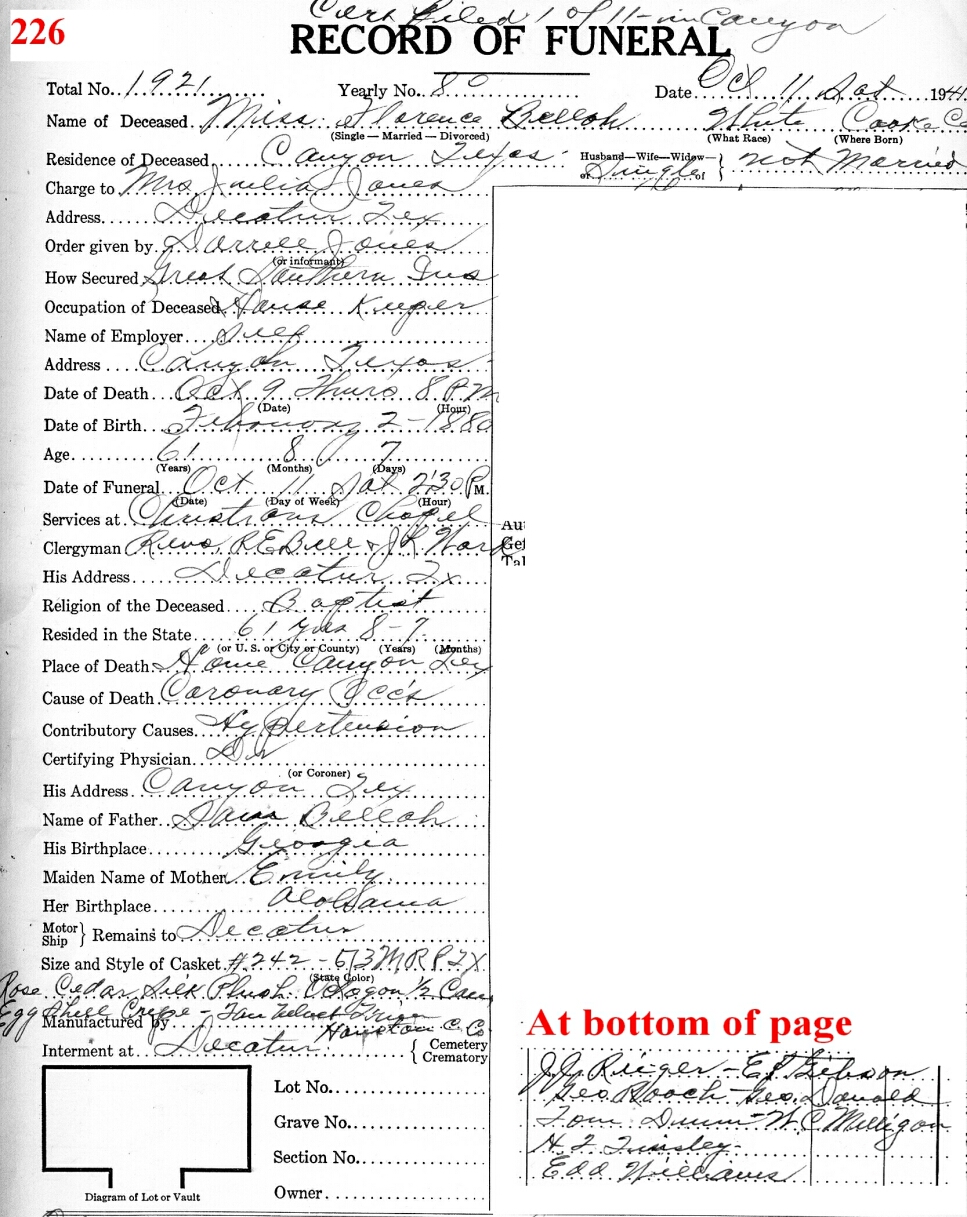 Cert Filed 1 of 11 - in Canyon
226
RECORD OF FUNERAL
Total No. 1921 Yearly No. 80 Date Oct 11 Sat 1941
Name of Deceased Miss Florence Bellah White Cooke Co
(Single — Married — Divorced) (What Race) (Where Born)
Residence of Deceased Canyon Texas Husband—Wife—Widow— of Single of } Not Married
Charge to Mrs Julia Jones
Address Decatur Tex
Order given by Darrell Jones
(or informant)
How Secured Great Southern Ins
Occupation of Deceased House Keeper
Name of Employer Self
Address Canyon Texas
Date of Death Oct 9 Thurs 8 P.M
(Date) (Hour)
Date of Birth February 2 - 1880
Age 61 8 7
(Years) (Months) (Days)
Date of Funeral Oct 11 Sat 2:30 P M.
(Date) (Day of Week) (Hour)
Services at Christians Chapel
Au
Clergyman Revs. R E Bell & J R Ward
Get
Tal
His Address Decatur Tx
Religion of the Deceased Baptist
Resided in the State 61 yrs 8 - 7
(or U. S. or City or County) (Years) (Months)
Place of Death Home Canyon Tex
Cause of Death Coronary Occ's
Contributory Causes Hypertension
Certifying Physician Dr
(or Coroner)
His Address Canyon Tex
Name of Father Sam Bellah
His Birthplace Georgia
Maiden Name of Mother Emily
Her Birthplace Alabama
Motor Ship } Remains to Decatur
Size and Style of Casket #242 - 6/3 M R P TX
(State Color)
Rose Cedar Silk Plush Octagon 1/2 Cam
Egg Shell Crepe -
Manufactured by Houston C. Co
Interment at Decatur { Cemetery Crematory
Lot No.
Grave No.
Section No.
Owner
Diagram of Lot or Vault
At bottom of page
J J Rieger - E F Gibson
Geo Roach - Geo. Donald
Tom Dunn - W C Milligan
H T Tinsley -
Edd Williams